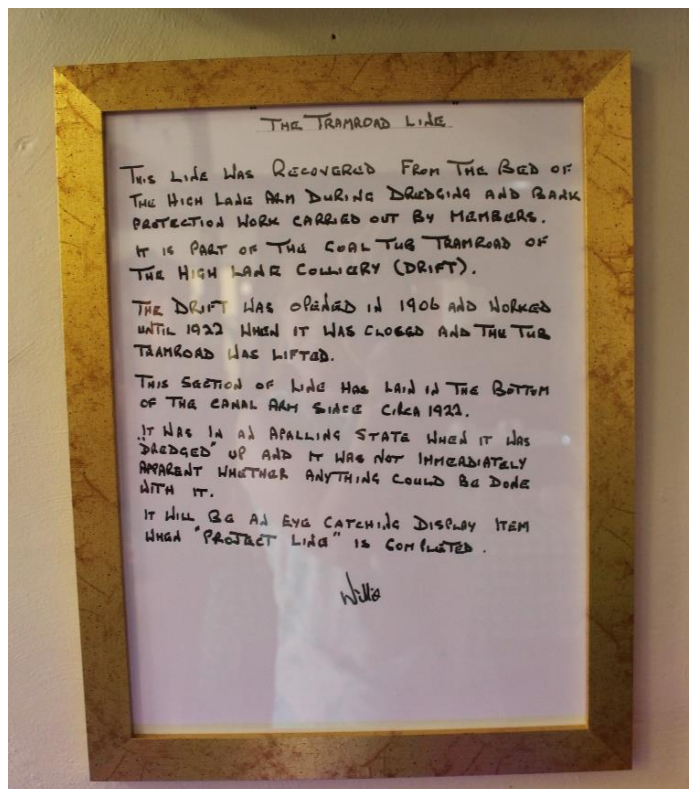 THE TRAMROAD LINE
THIS LINE WAS RECOVERED FROM THE BED OF
THE HIGH LANE ARM DURING DREDGING AND BANK
PROTECTION WORK CARRIED OUT BY MEMBERS.
IT IS PART OF THE COAL TUB TRAMROAD OF
THE HIGH LANE COLLIERY (DRIFT).
THE DRIFT WAS OPENED IN 1906 AND WORKED
UNTIL 1922 WHEN IT WAS CLOSED AND THE TUB
TRAMROAD WAS LIFTED.
THIS SECTION OF LINE HAS LAID IN THE BOTTOM
OF THE CANAL ARM SINCE CIRCA 1922.
IT WAS IN AN APALLING STATE WHEN IT WAS
"DREDGED" UP AND IT WAS NOT IMMEDIATELY
APPARENT WHETHER ANYTHING COULD BE DONE
WITH IT.
IT WILL BE AN EYE CATCHING DISPLAY ITEM
WHEN "PROJECT LINE" IS COMPLETED.
Willie